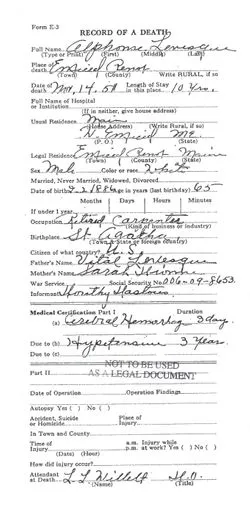 Form E-3
RECORD OF A DEATH
Full Name Alphonse Levesque
(Type or Print) (First) (Middle) (Last)
Place of death Enfield Penob
(Town) (County) Write RURAL, if so
Date of death Nov, 14. 51 Length of Stay in this place 10 Yrs.
Full Name of Hospital
or Institution
(If in neither, give house address)
Usual Residence Main
(House Address) (Write Rural, if so)
W. Enfield ME.
(P. O.) (State)
Legal Residence Enfield Penob Main
(Town) (County) (State)
Sex Male Color or race White
Married, Never Married, Widowed, Divorced
Date of birth 1886 Age in years (last birthday) 65
Months Days Hours Minutes
If under 1 year
Occupation Retired Carpenter
(Kind of business or industry)
Birthplace St Agatha
(Town & State or foreign country)
Citizen of what country? U. S.
Father's Name Vital Levesque
Mother's Name Sarah
War Service Social Security No. 006-09-8653
Informant Dorothy
Medical Certification Part I Duration
(a) Cerebral Hemorrhag 3 day.
Due to (b) Hypertensive 3 Years.
Due to (c)
NOT TO BE USED
Part II AS A LEGAL DOCUMENT
Date of Operation Operation Findings
Autopsy Yes ( ) No ( )
Accident, Suicide Place of
or Homicide Injury
In Town and County
Time of a.m. Injury while
Injury p.m. at work? Yes ( ) No ( )
(Date) (Hour)
How did injury occur?
Attendant
at Death L. L. Willett M.D.
(Name) (Title)